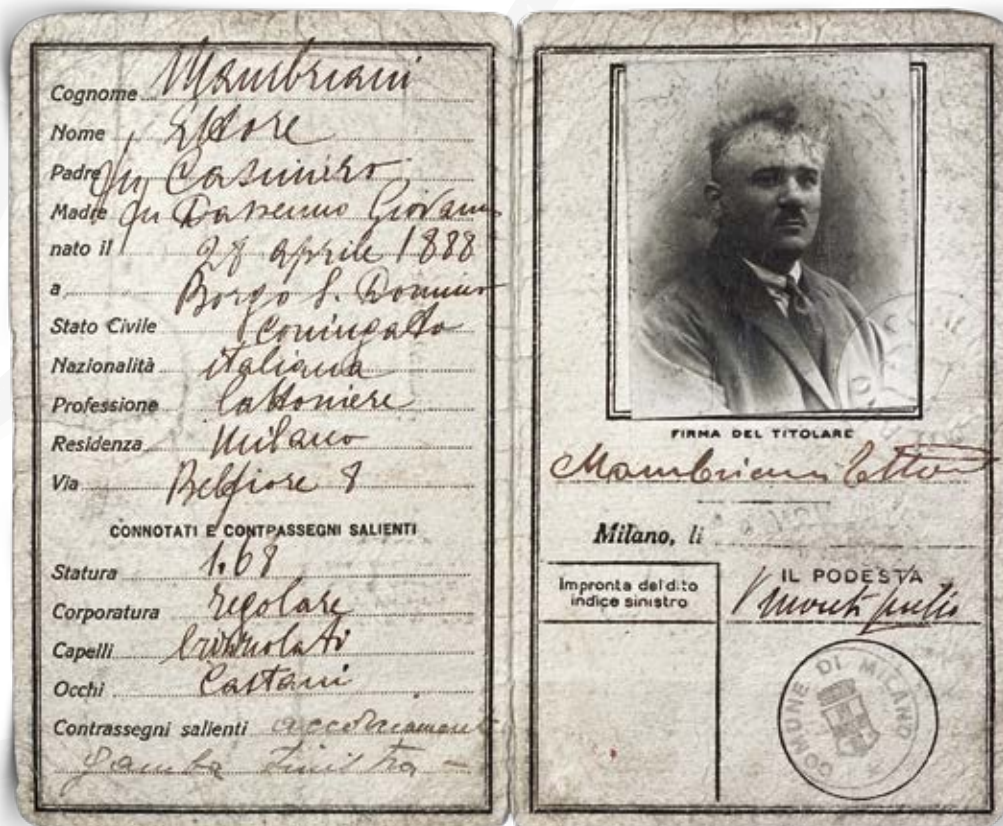 Cognome Mambriani
Nome Ettore
Padre fu Casimiro
Madre fu Giovanna
nato il 28 aprile 1888
a Borgo S. Donnino
Stato Civile coniugato
Nazionalità italiana
Professione lattoniere
Residenza Milano
Via Belfiore 8
CONNOTATI E CONTRASSEGNI SALIENTI
Statura 1.68
Corporatura regolare
Capelli brizzolati
Occhi Castani
Contrassegni salienti accorciamento
gamba sinistra -
FIRMA DEL TITOLARE
Mambriani Ettore
Milano, li
Impronta del dito
indice sinistro
IL PODESTÀ
COMUNE DI MILANO